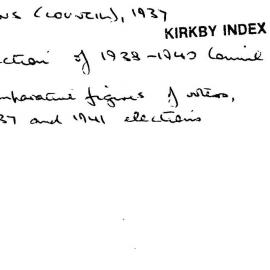 NS (COUNCIL), 1937
KIRKBY INDEX
ction of 1938-1940 Council
mparative figures of votes,
37 and 1941 elections